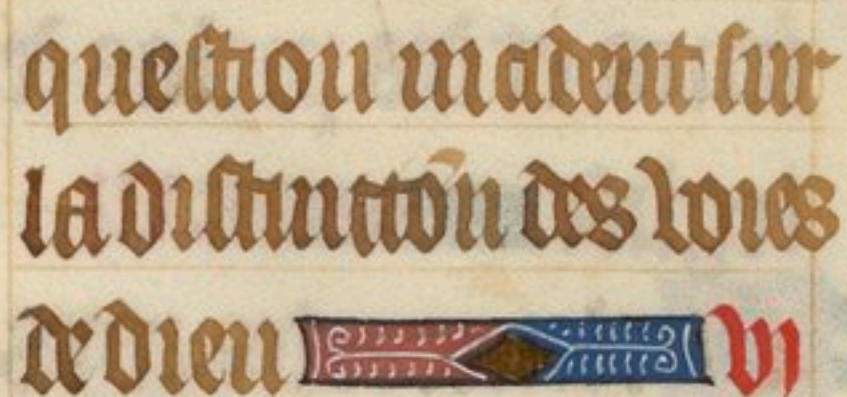 question incident sur
la distinctiõn des voies
de dieu vj